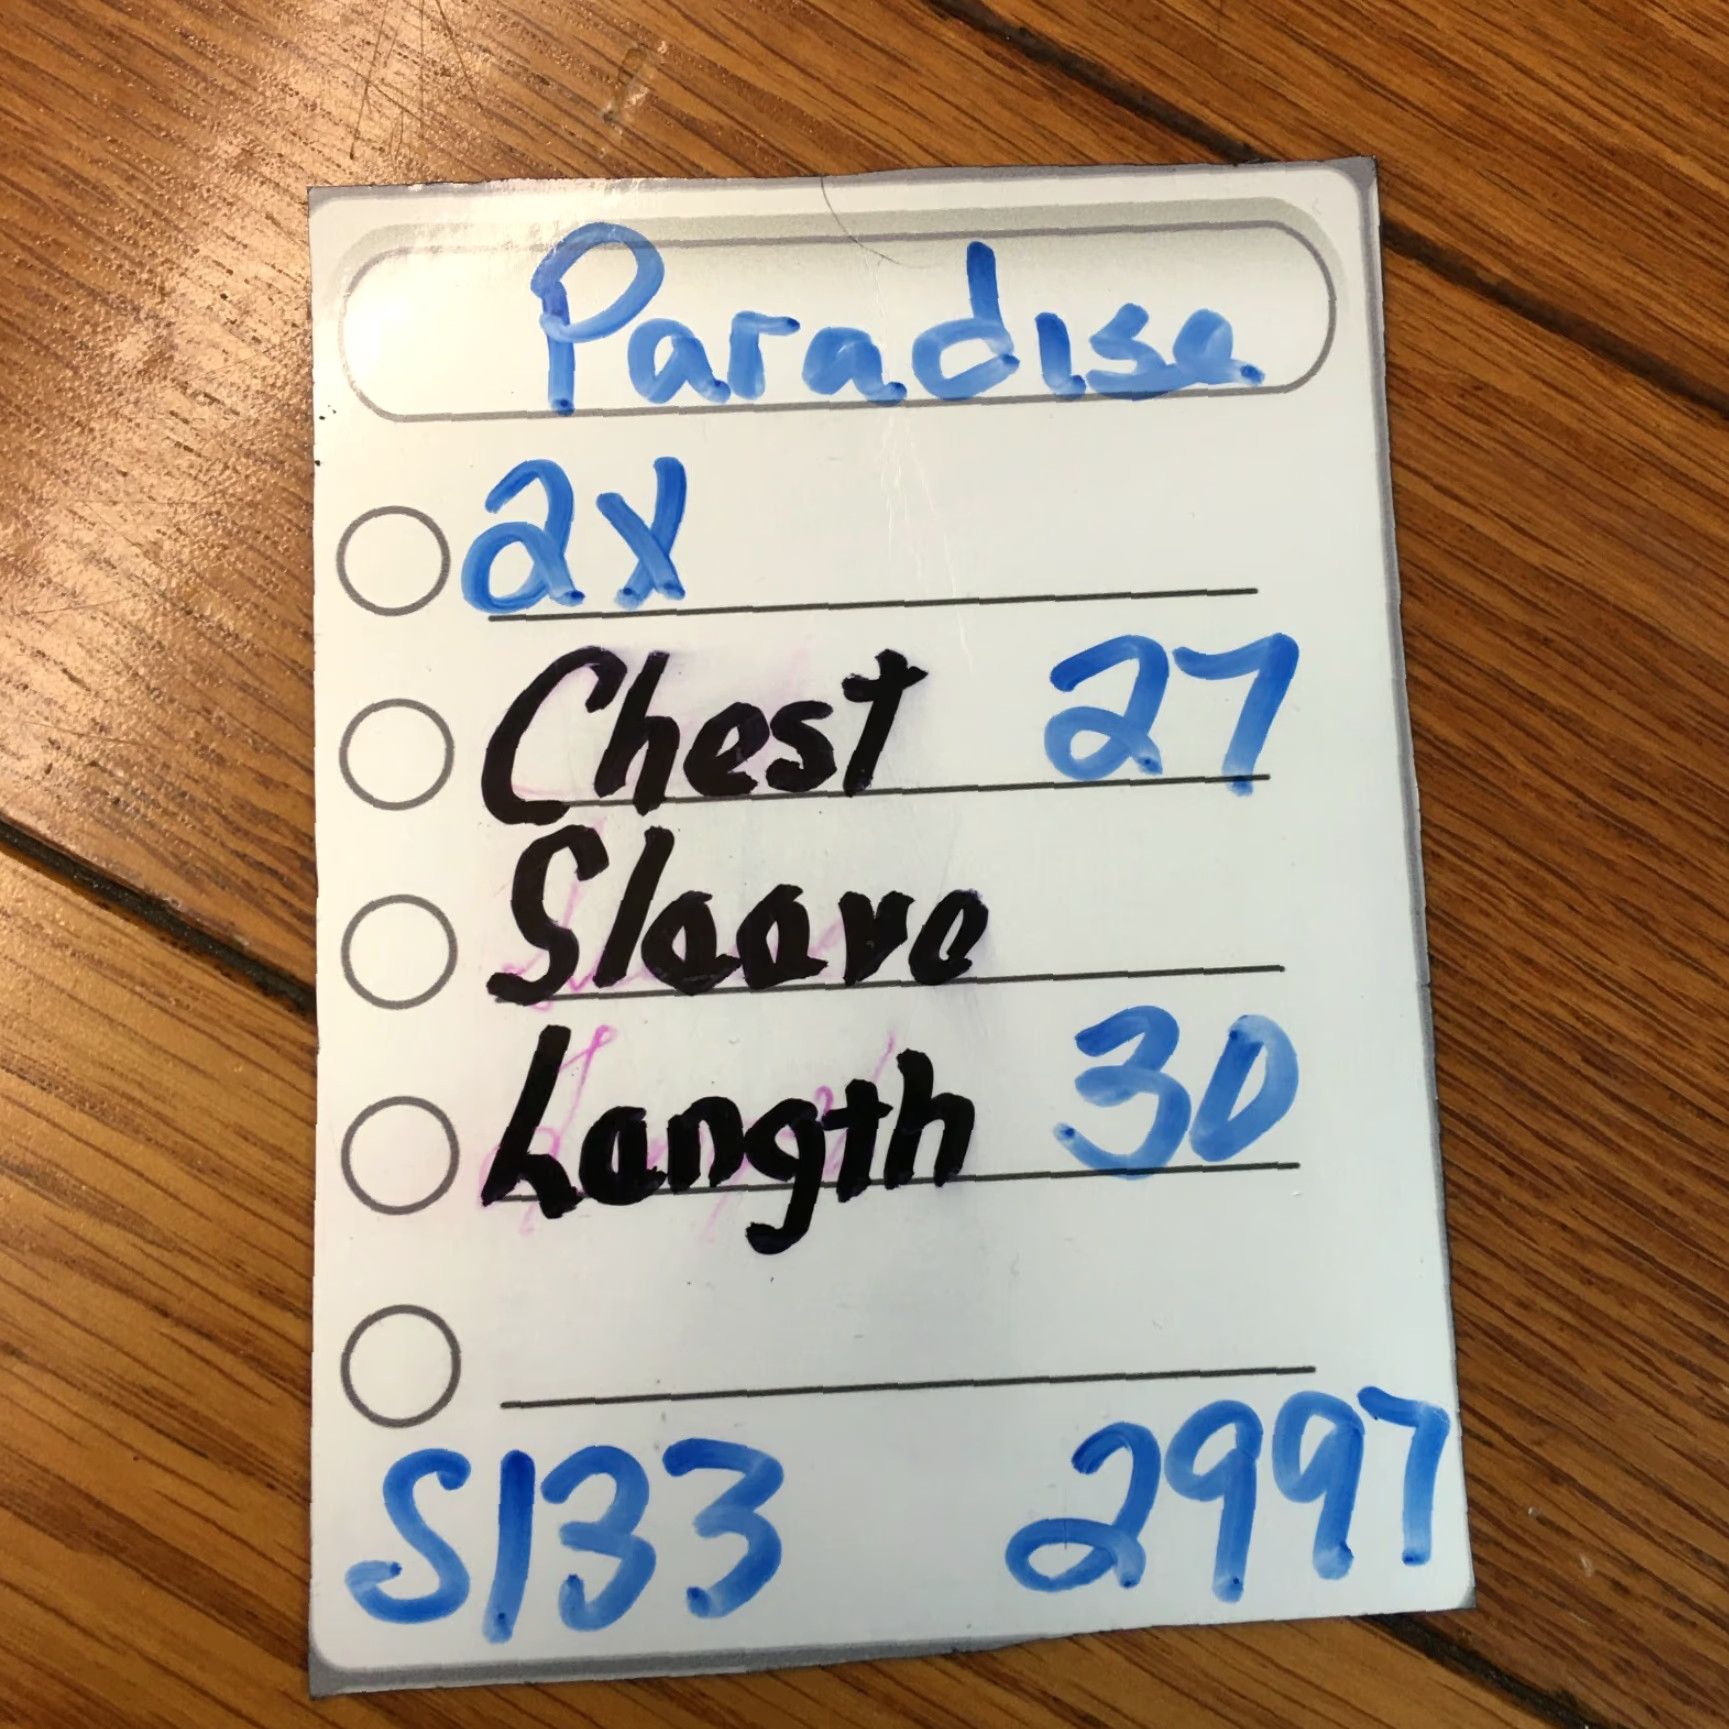 Paradise
2x
Chest 27
Sleeve
Length 30
S133 2997